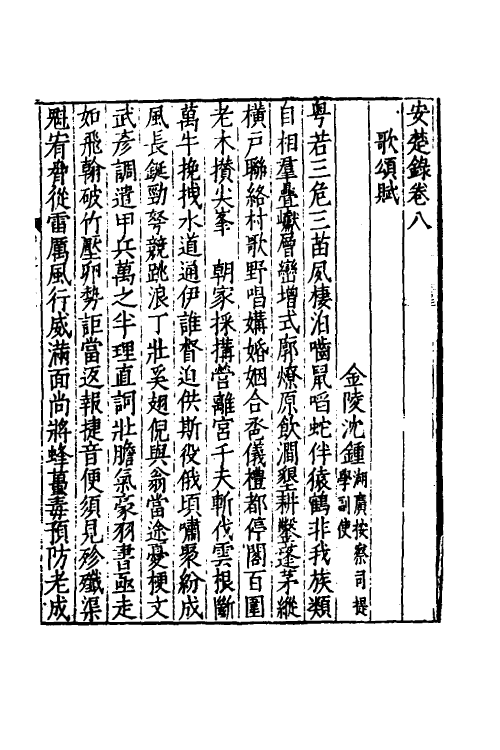 安楚錄卷八
歌頌賦
金陵沈鍾湖廣按察司提學副使
粤若三危三苗凮棲泊嚙鼠啗蛇伴猿鶴非我族類
自相羣疊巘層巒增式廓燎原飲澗墾耕鑿蓬茅縱
橫戸聯絡村歌野唱媾婚姻合巹儀禮都停閣百圍
老木攅尖峯 朝家採搆營離宮千夫斬伐雲根斷
萬牛挽拽水道通伊誰督迫供斯役俄頃嘯聚紛成
風長鋋勁弩競跳浪丁壯奚翅倪與翁當途憂梗文
武彦調遣甲兵萬之半理直詞壯膽氣豪羽書亟走
如飛翰破竹壓卵勢詎當返報捷音便須見殄殲渠
魁宥脅從雷厲風行威滿面尚將蜂蠆毒預防老成